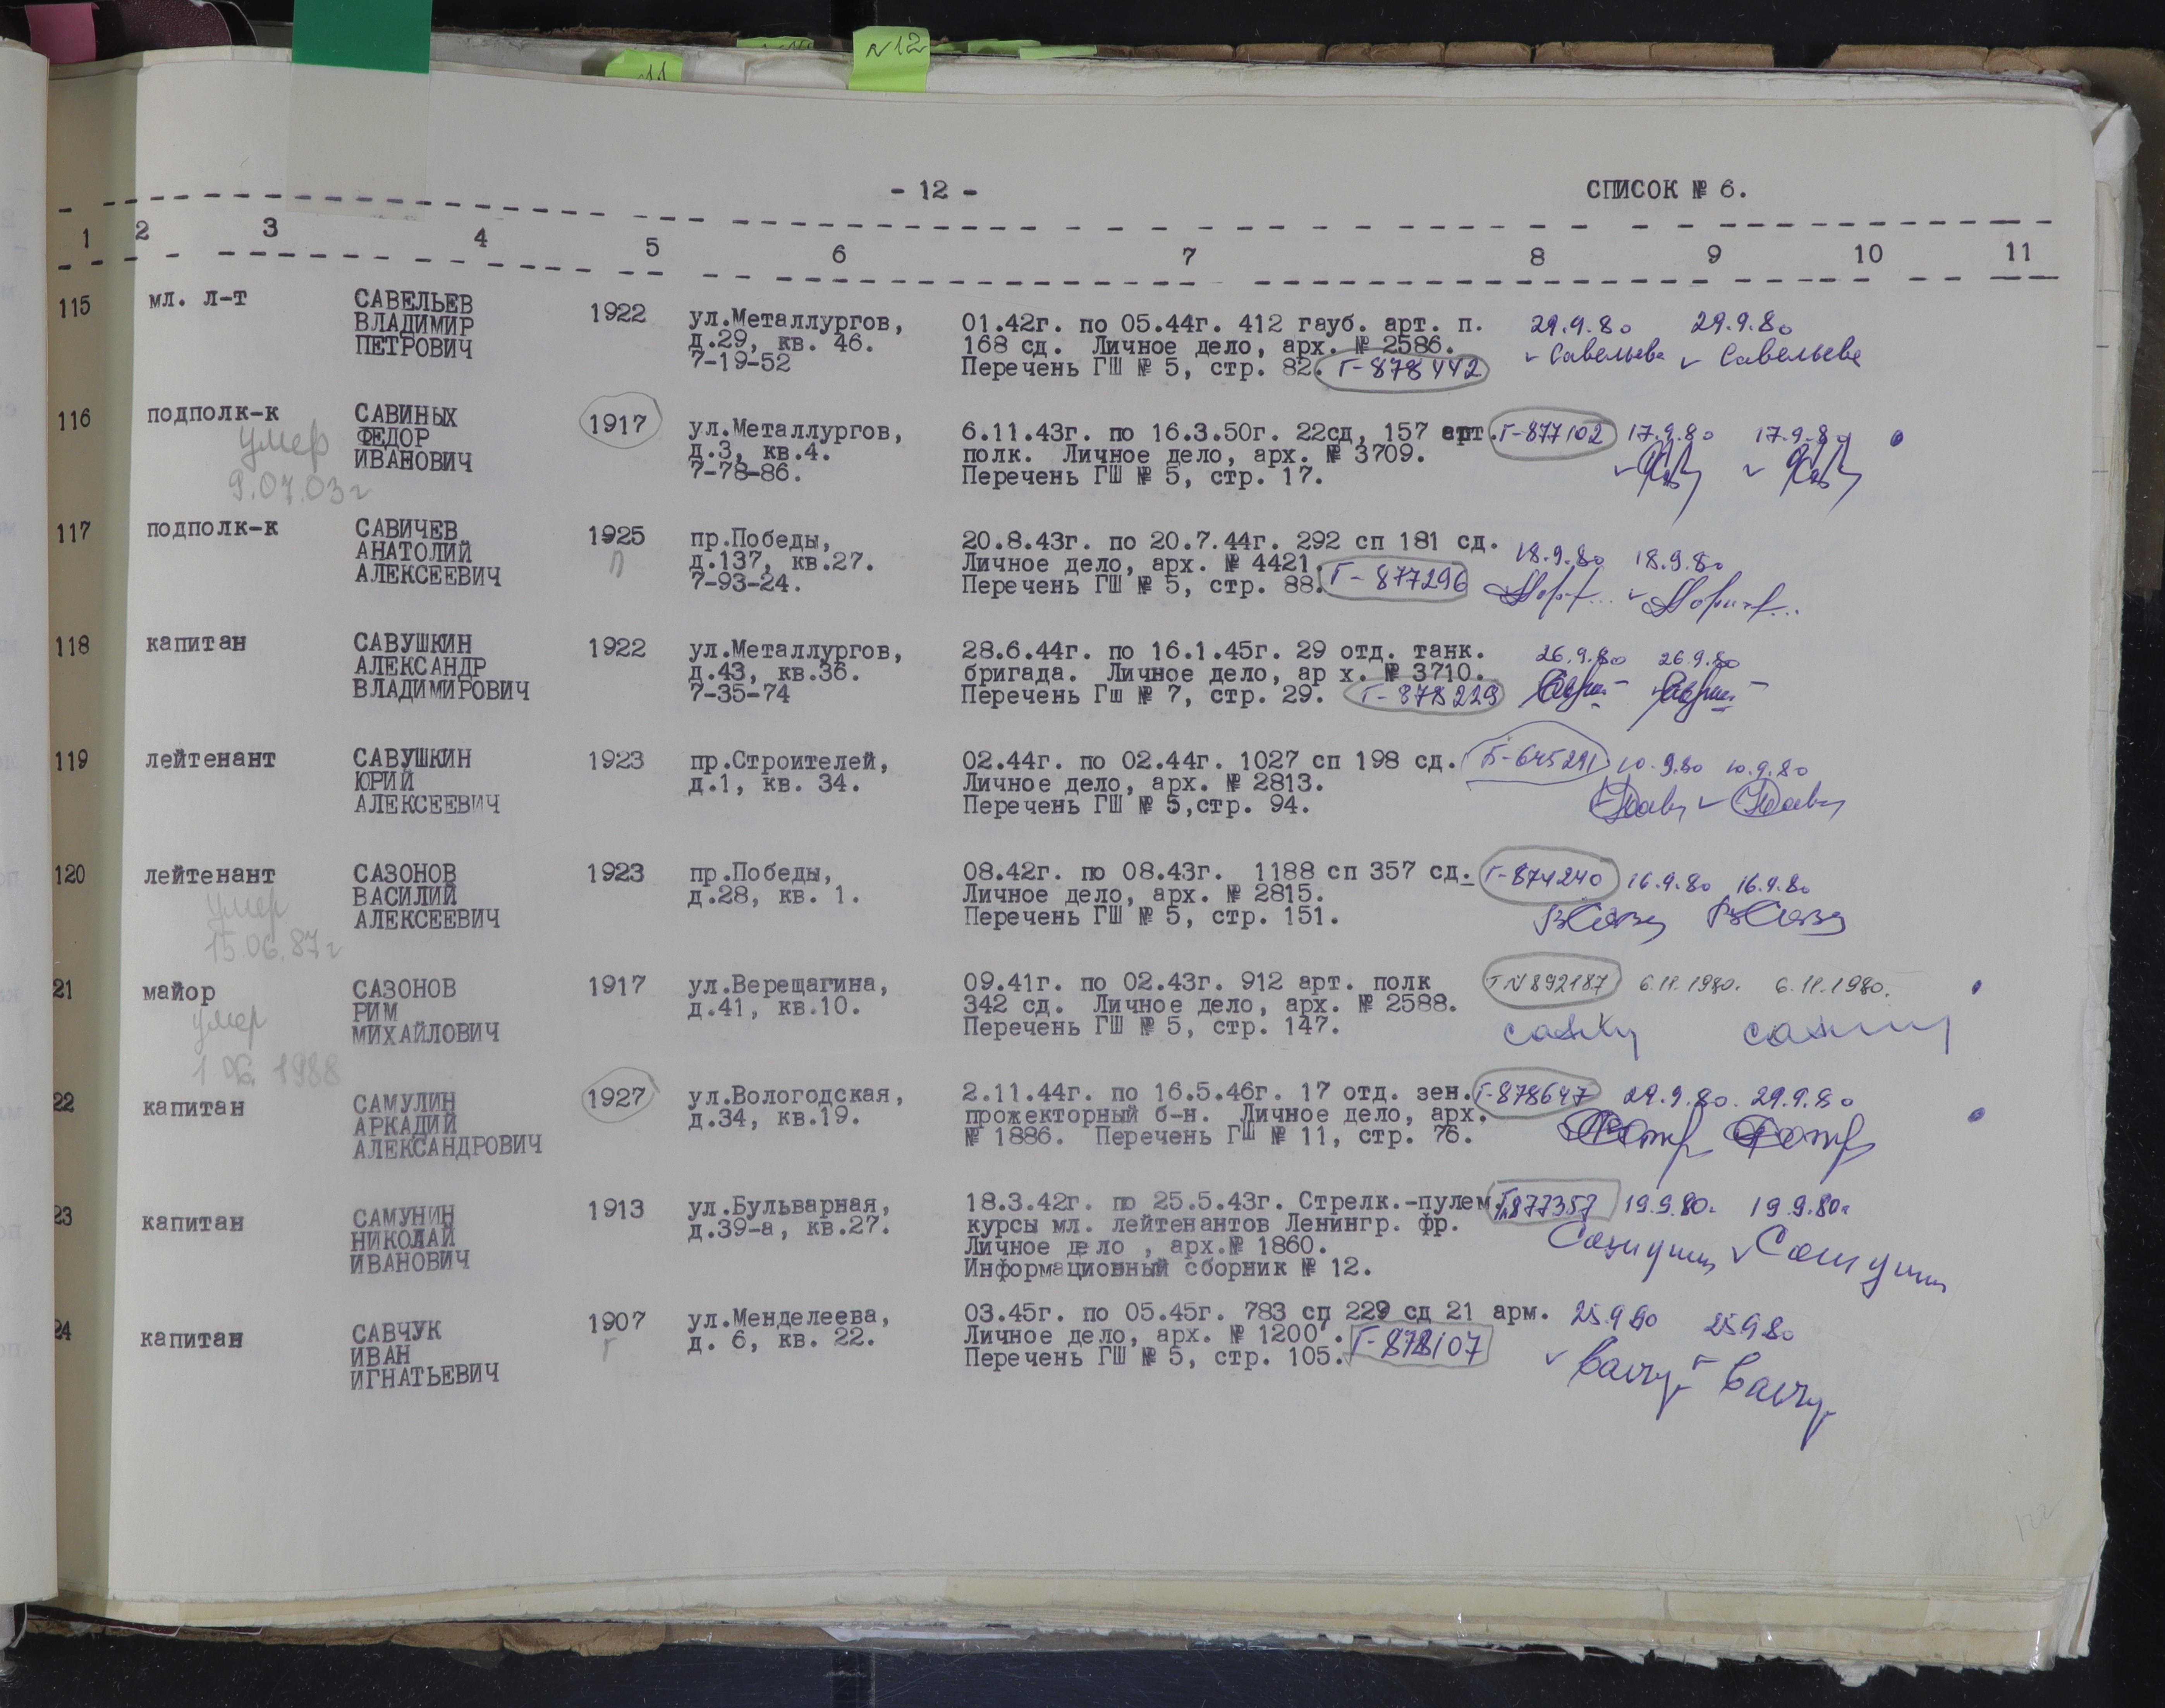 №12
- 12 -
СПИСОК № 6.
1 2 3 4 5 6 7 8 9 10 11
115 мл. л-т САВЕЛЬЕВ ВЛАДИМИР ПЕТРОВИЧ 1922
ул.Металлургов,
д.29, кв. 46.
7-19-52
01.42г. по 05.44г. 412 гауб. арт. п.
168 сд. Личное дело, арх. № 2586.
Перечень ГШ № 5, стр. 82. Г-878442
29.9.80 29.9.80
Савельева Савельева
116 подполк-к САВИНЫХ ФЕДОР ИВАНОВИЧ 1917
умер
9.07.03г
ул.Металлургов,
д.3, кв.4.
7-78-86.
6.11.43г. по 16.3.50г. 22сд, 157 арт. Г-877102
полк. Личное дело, арх. № 3709.
Перечень ГШ № 5, стр. 17.
17.9.80 17.9.80
117 подполк-к САВИЧЕВ АНАТОЛИЙ АЛЕКСЕЕВИЧ 1925
П
пр.Победы,
д.137, кв.27.
7-93-24.
20.8.43г. по 20.7.44г. 292 сп 181 сд.
Личное дело, арх. № 4421.
Перечень ГШ № 5, стр. 88. Г-877296
18.9.80 18.9.80
118 капитан САВУШКИН АЛЕКСАНДР ВЛАДИМИРОВИЧ 1922
ул.Металлургов,
д.43, кв.36.
7-35-74
28.6.44г. по 16.1.45г. 29 отд. танк.
бригада. Личное дело, ар х. № 3710.
Перечень Гш № 7, стр. 29. Г-878229
26.9.80 26.9.80
119 лейтенант САВУШКИН ЮРИЙ АЛЕКСЕЕВИЧ 1923
пр.Строителей,
д.1, кв. 34.
02.44г. по 02.44г. 1027 сп 198 сд. Б-645291
Личное дело, арх. № 2813.
Перечень ГШ № 5,стр. 94.
10.9.80 10.9.80
120 лейтенант САЗОНОВ ВАСИЛИЙ АЛЕКСЕЕВИЧ 1923
умер
15.06.87г
пр.Победы,
д.28, кв. 1.
08.42г. по 08.43г. 1188 сп 357 сд. Г-874240
Личное дело, арх. № 2815.
Перечень ГШ № 5, стр. 151.
16.9.80 16.9.80
21 майор САЗОНОВ РИМ МИХАЙЛОВИЧ 1917
умер
1988
ул.Верещагина,
д.41, кв.10.
09.41г. по 02.43г. 912 арт. полк
342 сд. Личное дело, арх. № 2588.
Перечень ГШ № 5, стр. 147.
Г№892187 6.11.1980. 6.11.1980.
22 капитан САМУЛИН АРКАДИЙ АЛЕКСАНДРОВИЧ 1927
ул.Вологодская,
д.34, кв.19.
2.11.44г. по 16.5.46г. 17 отд. зен. Г-878647
прожекторный б-н. Личное дело, арх.
№ 1886. Перечень ГШ № 11, стр. 76.
29.9.80. 29.9.80
23 капитан САМУНИН НИКОЛАЙ ИВАНОВИЧ 1913
ул.Бульварная,
д.39-а, кв.27.
18.3.42г. по 25.5.43г. Стрелк.-пулем. Г877357
курсы мл. лейтенантов Ленингр. фр.
Личное дело , арх.№ 1860.
Информационный сборник № 12.
19.9.80г 19.9.80г
24 капитан САВЧУК ИВАН ИГНАТЬЕВИЧ 1907
г
ул.Менделеева,
д. 6, кв. 22.
03.45г. по 05.45г. 783 сп 229 сд 21 арм.
Личное дело, арх. № 1200 .
Перечень ГШ № 5, стр. 105. Г-878107
25.9.80 25.9.80
122